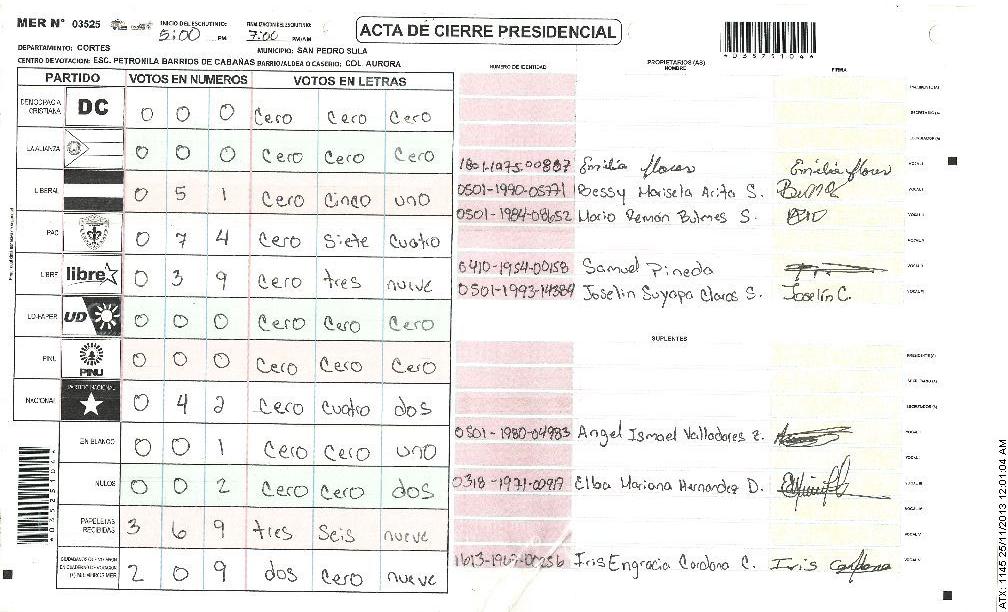 MER N° 03525 INICIO DEL ESCRUTINIO: 5:00 PM FINALIZACION DEL ESCRUTINIO: 7:00 PM/AM
ACTA DE CIERRE PRESIDENCIAL
DEPARTAMENTO: CORTES MUNICIPIO: SAN PEDRO SULA
CENTRO DE VOTACION: ESC. PETRONILA BARRIOS DE CABAÑAS BARRIO/ALDEA O CASERIO: COL. AURORA
PARTIDO VOTOS EN NUMEROS VOTOS EN LETRAS
DEMOCRACIA CRISTIANA DC 0 0 0 Cero Cero Cero
LA ALIANZA 0 0 0 Cero Cero Cero
LIBERAL 0 5 1 Cero Cinco uno
PAC 0 7 4 Cero Siete Cuatro
LIBRE libre 0 3 9 Cero tres nueve
UD-FAPER UD 0 0 0 Cero Cero Cero
PINU PINU 0 0 0 Cero Cero Cero
NACIONAL PARTIDO NACIONAL 0 4 2 Cero Cuatro dos
EN BLANCO 0 0 1 Cero Cero uno
NULOS 0 0 2 Cero Cero dos
PAPELETAS RECIBIDAS 3 6 9 tres Seis nueve
2 0 9 dos Cero nueve
NUMERO DE IDENTIDAD PROPIETARIOS (AS) NOMBRE FIRMA
PRESIDENTE (A)
SECRETARIO (A)
ESCRUTADOR (A)
1801-1975-00887 Emilia flores Emilia flores VOCAL I
0501-1990-05771 Bessy Marisela Arita S. VOCAL II
0501-1984-08652 Mario Ramón Bulnes S. VOCAL III
VOCAL IV
0410-1954-00158 Samuel Pineda VOCAL V
0501-1993-14384 Joselin Suyapa Claros S. Joselín C. VOCAL VI
SUPLENTES
PRESIDENTE (A)
SECRETARIO (A)
ESCRUTADOR (A)
0501-1980-04983 Angel Ismael Valladares Z. VOCAL I
VOCAL II
0318-1971-00917 Elba Mariana Hernandez D. VOCAL III
VOCAL IV
VOCAL V
1613-1962-00256 Iris Engracia Cardona C. Iris Cardona VOCAL VI
ATX: 1145 25/11/2013 12:01:04 AM